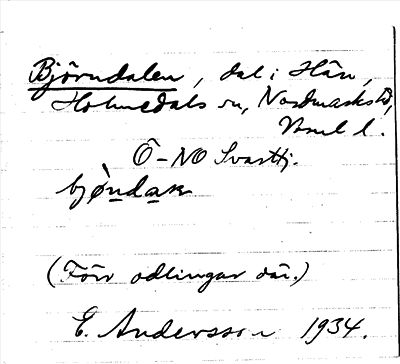 Björndalen, dal i Hån,
Holmedals sn, Nordmarks hd,
Värml l.
Ö-NO Svarttj.
bjø̀ndaɳ
(Förr odlingar där.)
E. Andersson 1934.